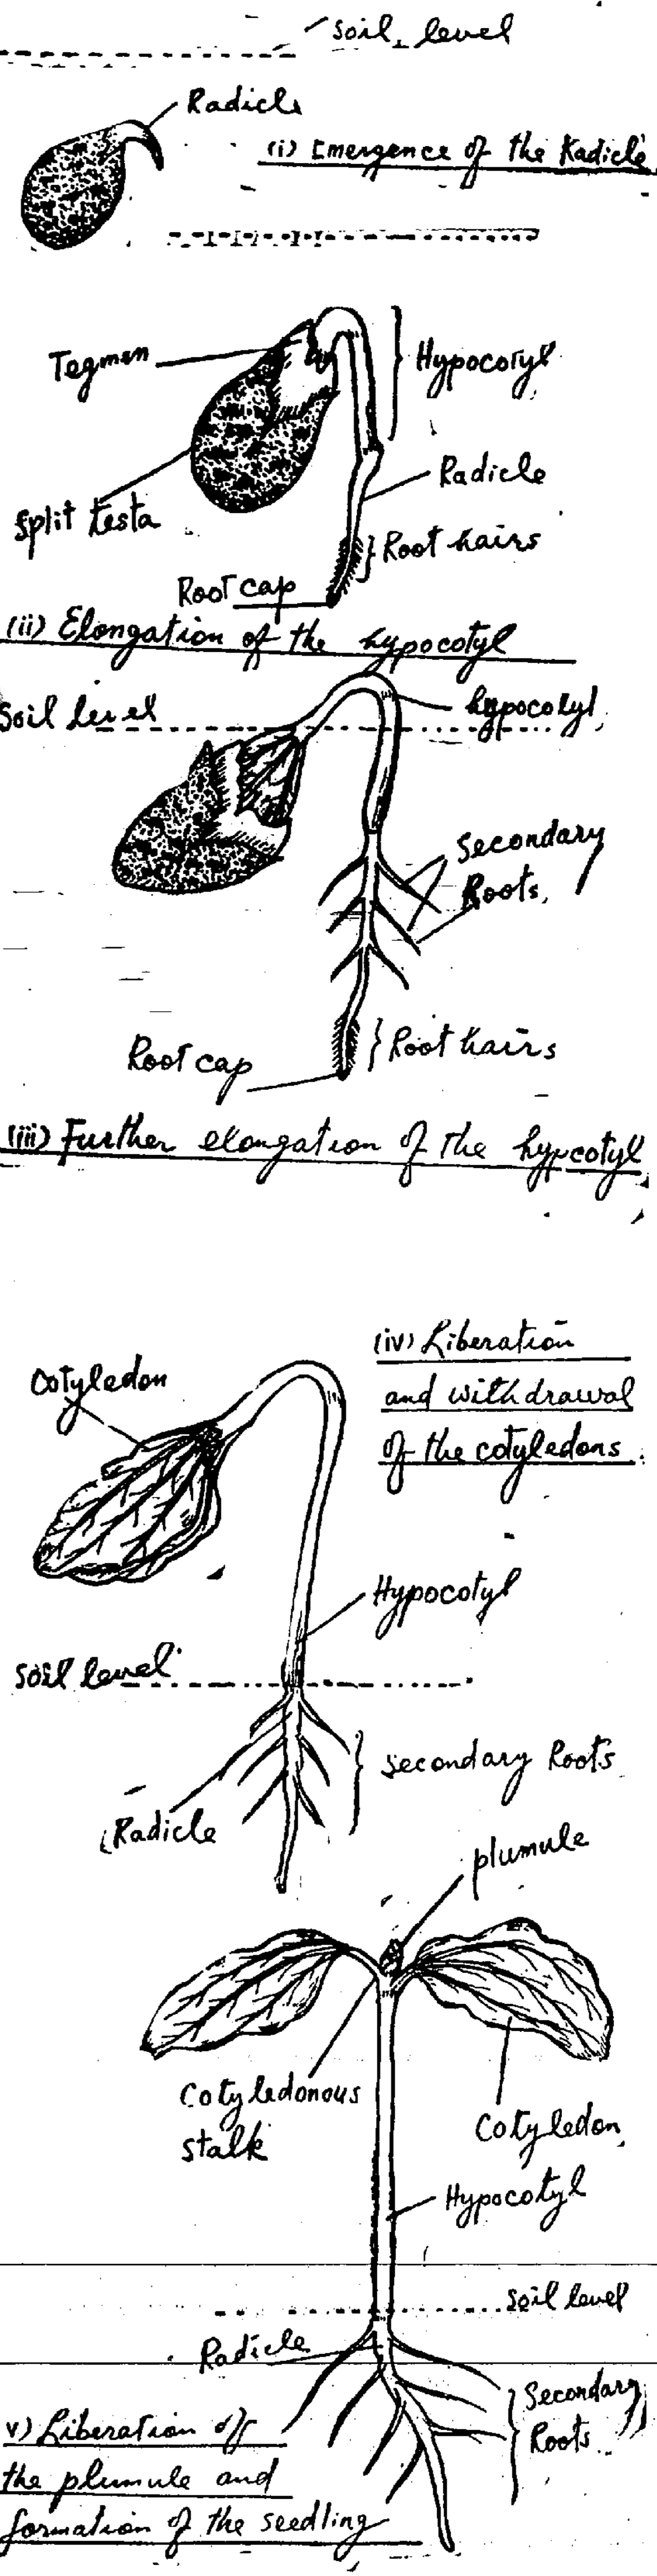 soil level
Radicle
(i) Emergence of the Radicle
Tegmen
Hypocotyl
Radicle
Split testa
Root hairs
Root cap
(ii) Elongation of the hypocotyl
Soil level
hypocotyl
Secondary
Roots
Root hairs
Root cap
(iii) Further elongation of the hypcotyl
(iv) Liberation
and withdrawal
of the cotyledons.
Cotyledon
Hypocotyl
Soil level
Secondary Roots
Radicle
plumule
Cotyledonous
stalk
Cotyledon
Hypocotyl
soil level
Radicle
Secondary
Roots
v) Liberation of
the plumule and
formation of the seedling